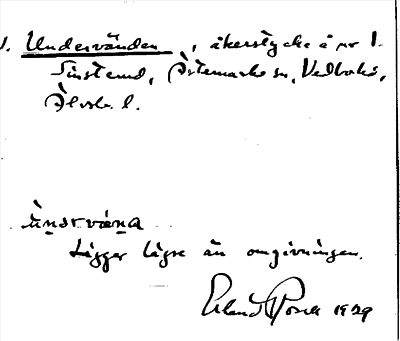 1. Undervänden, åkerstycke å nr 1.
Sinstemd, Östemarks sn, Vedbo hd,
Älvsb. l.
ùndrvæna
Ligger lägre än omgivningen.
Erland Rosell 1929